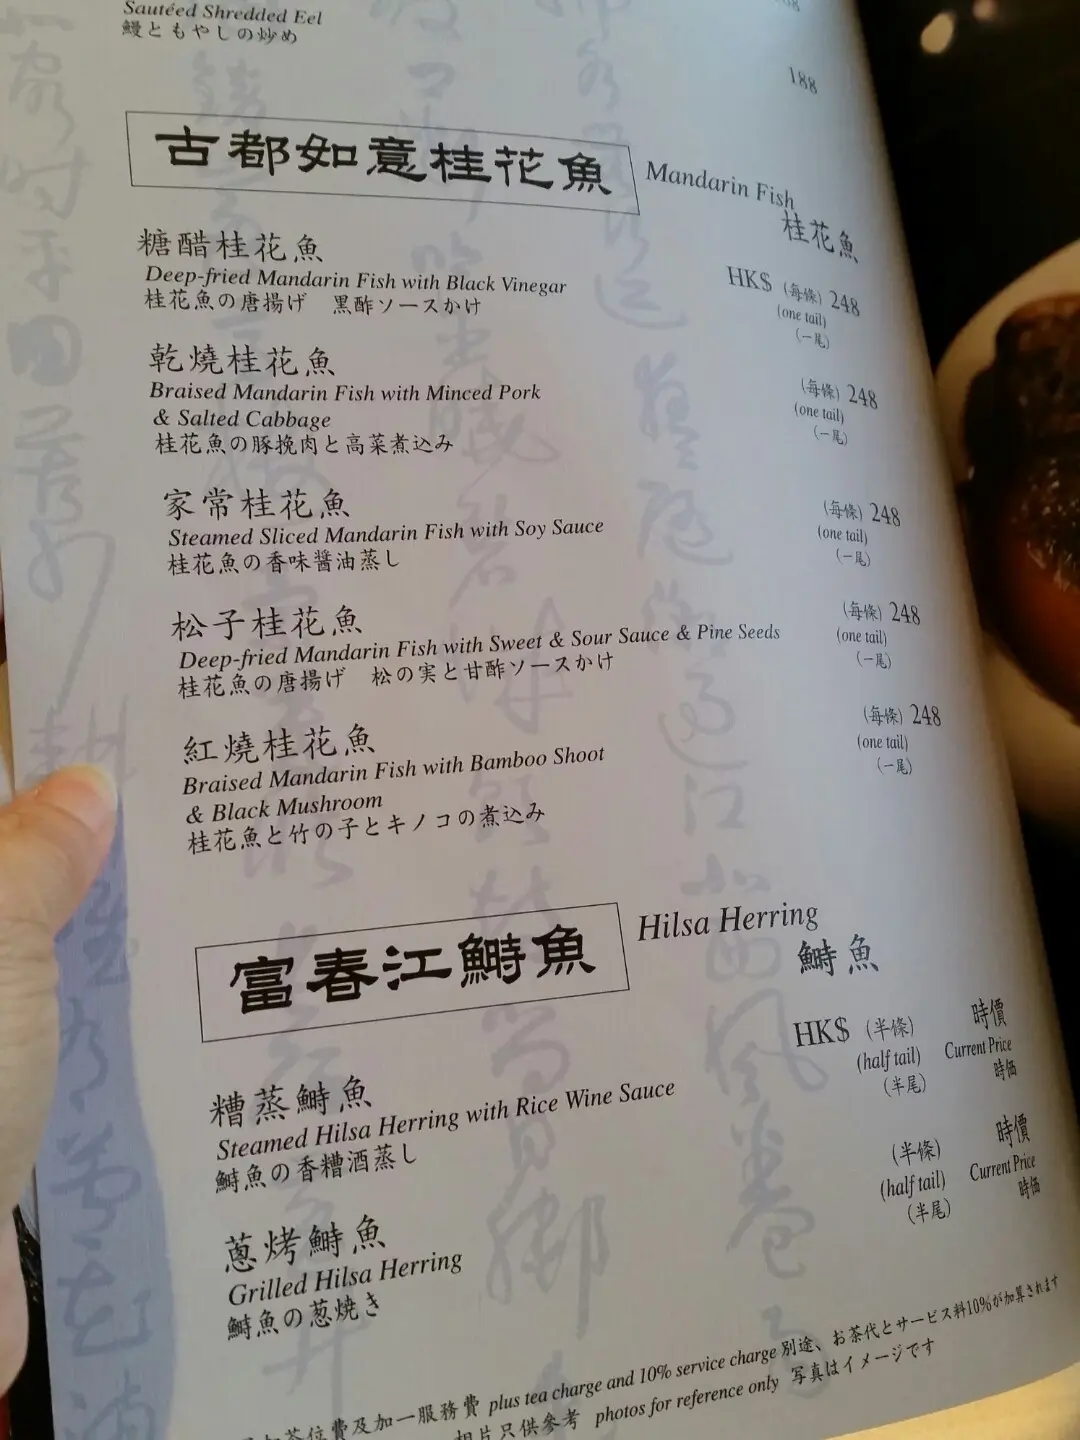 Sautéed Shredded Eel
鰻ともやしの炒め
188
古都如意桂花魚 Mandarin Fish
桂花魚
糖醋桂花魚
Deep-fried Mandarin Fish with Black Vinegar
桂花魚の唐揚げ 黒酢ソースかけ
HK$ (每條) 248
(one tail)
(一尾)
乾燒桂花魚
Braised Mandarin Fish with Minced Pork
& Salted Cabbage
桂花魚の豚挽肉と高菜煮込み
(每條) 248
(one tail)
(一尾)
家常桂花魚
Steamed Sliced Mandarin Fish with Soy Sauce
桂花魚の香味醤油蒸し
(每條) 248
(one tail)
(一尾)
松子桂花魚
Deep-fried Mandarin Fish with Sweet & Sour Sauce & Pine Seeds
桂花魚の唐揚げ 松の実と甘酢ソースかけ
(每條) 248
(one tail)
(一尾)
紅燒桂花魚
Braised Mandarin Fish with Bamboo Shoot
& Black Mushroom
桂花魚と竹の子とキノコの煮込み
(每條) 248
(one tail)
(一尾)
富春江鰣魚 Hilsa Herring
鰣魚
糟蒸鰣魚
Steamed Hilsa Herring with Rice Wine Sauce
鰣魚の香糟酒蒸し
HK$ (半條) 時價
(half tail) Current Price
(半尾) 時価
蔥烤鰣魚
Grilled Hilsa Herring
鰣魚の葱焼き
(半條) 時價
(half tail) Current Price
(半尾) 時価
茶位費及加一服務費 plus tea charge and 10% service charge 別途、お茶代とサービス料10%が加算されます
相片只供參考 photos for reference only 写真はイメージです